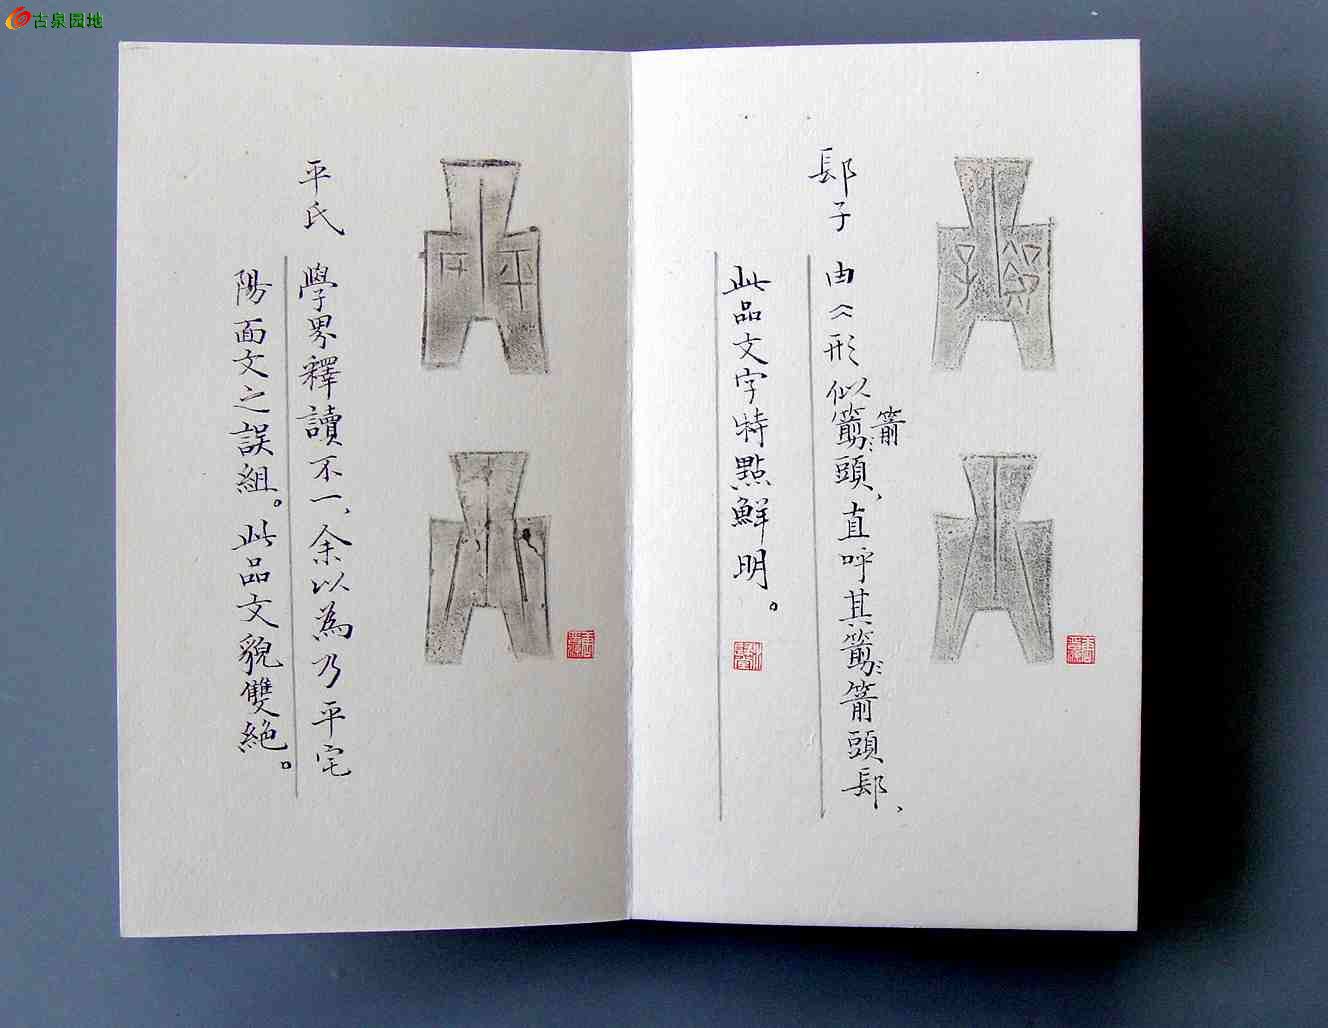 古泉园地
子 由形似箭頭、直呼其箭頭、
此品文字特點鮮明。
平氏 學界釋讀不一、余以為乃平宅
陽面文之誤組。此品文貌雙絶。